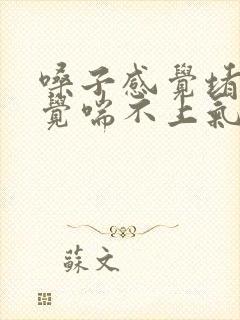 嗓子感覺堵
覺喘不上氣
蘇文